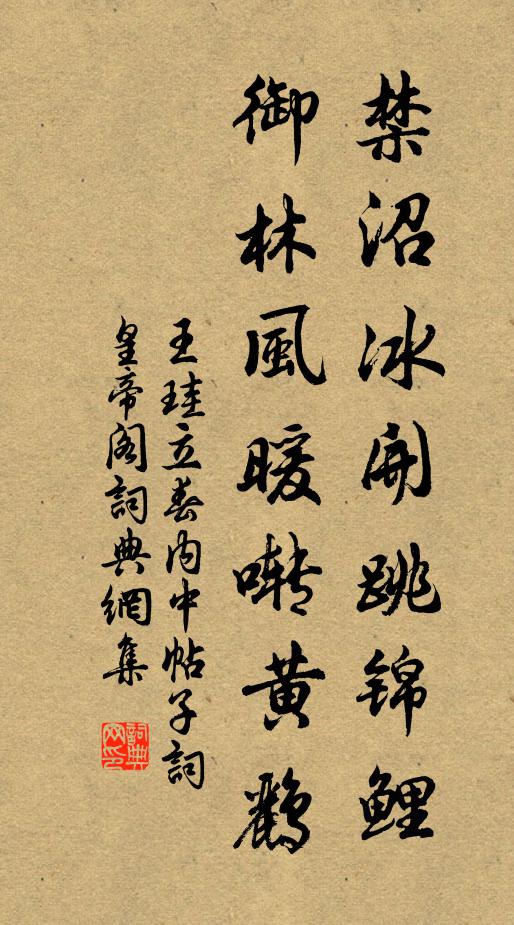 禁沼冰開跳錦鯉
御林風暖囀黃鸝
王珪立春內中帖子詞
皇帝閣詞典網集
詞典
网印